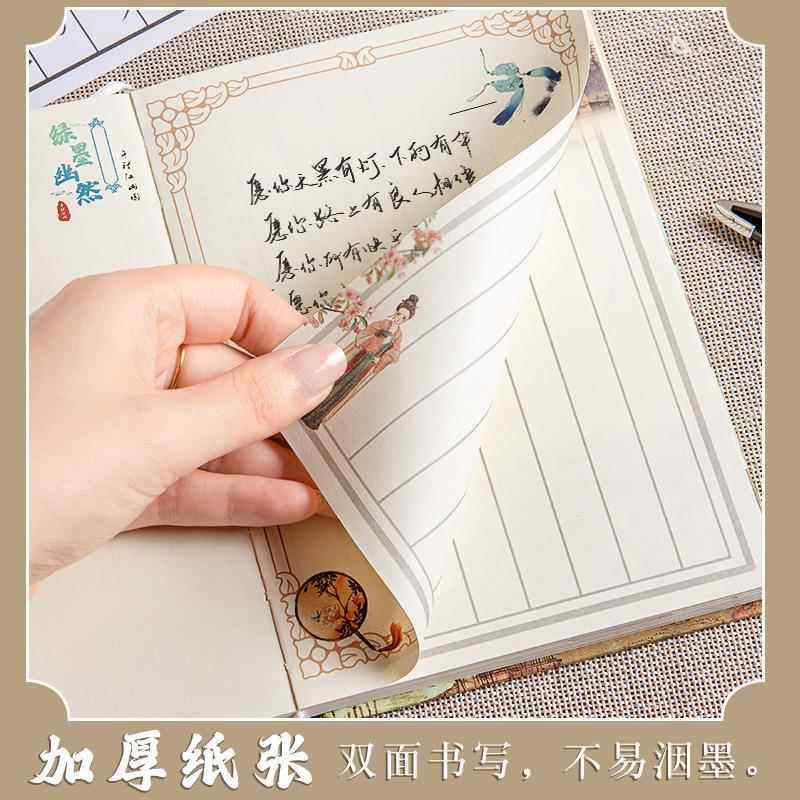 绿墨幽然
千里江山图
愿你天黑有灯.下雨有伞
愿你.路上有良人相伴
愿你所有快
愿你
加厚纸张 双面书写，不易洇墨。